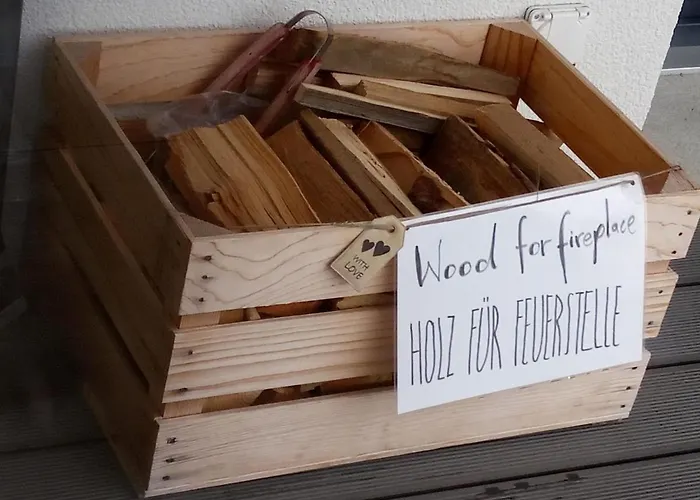 WITH
LOVE
Wood for fireplace
HOLZ FÜR FEUERSTELLE